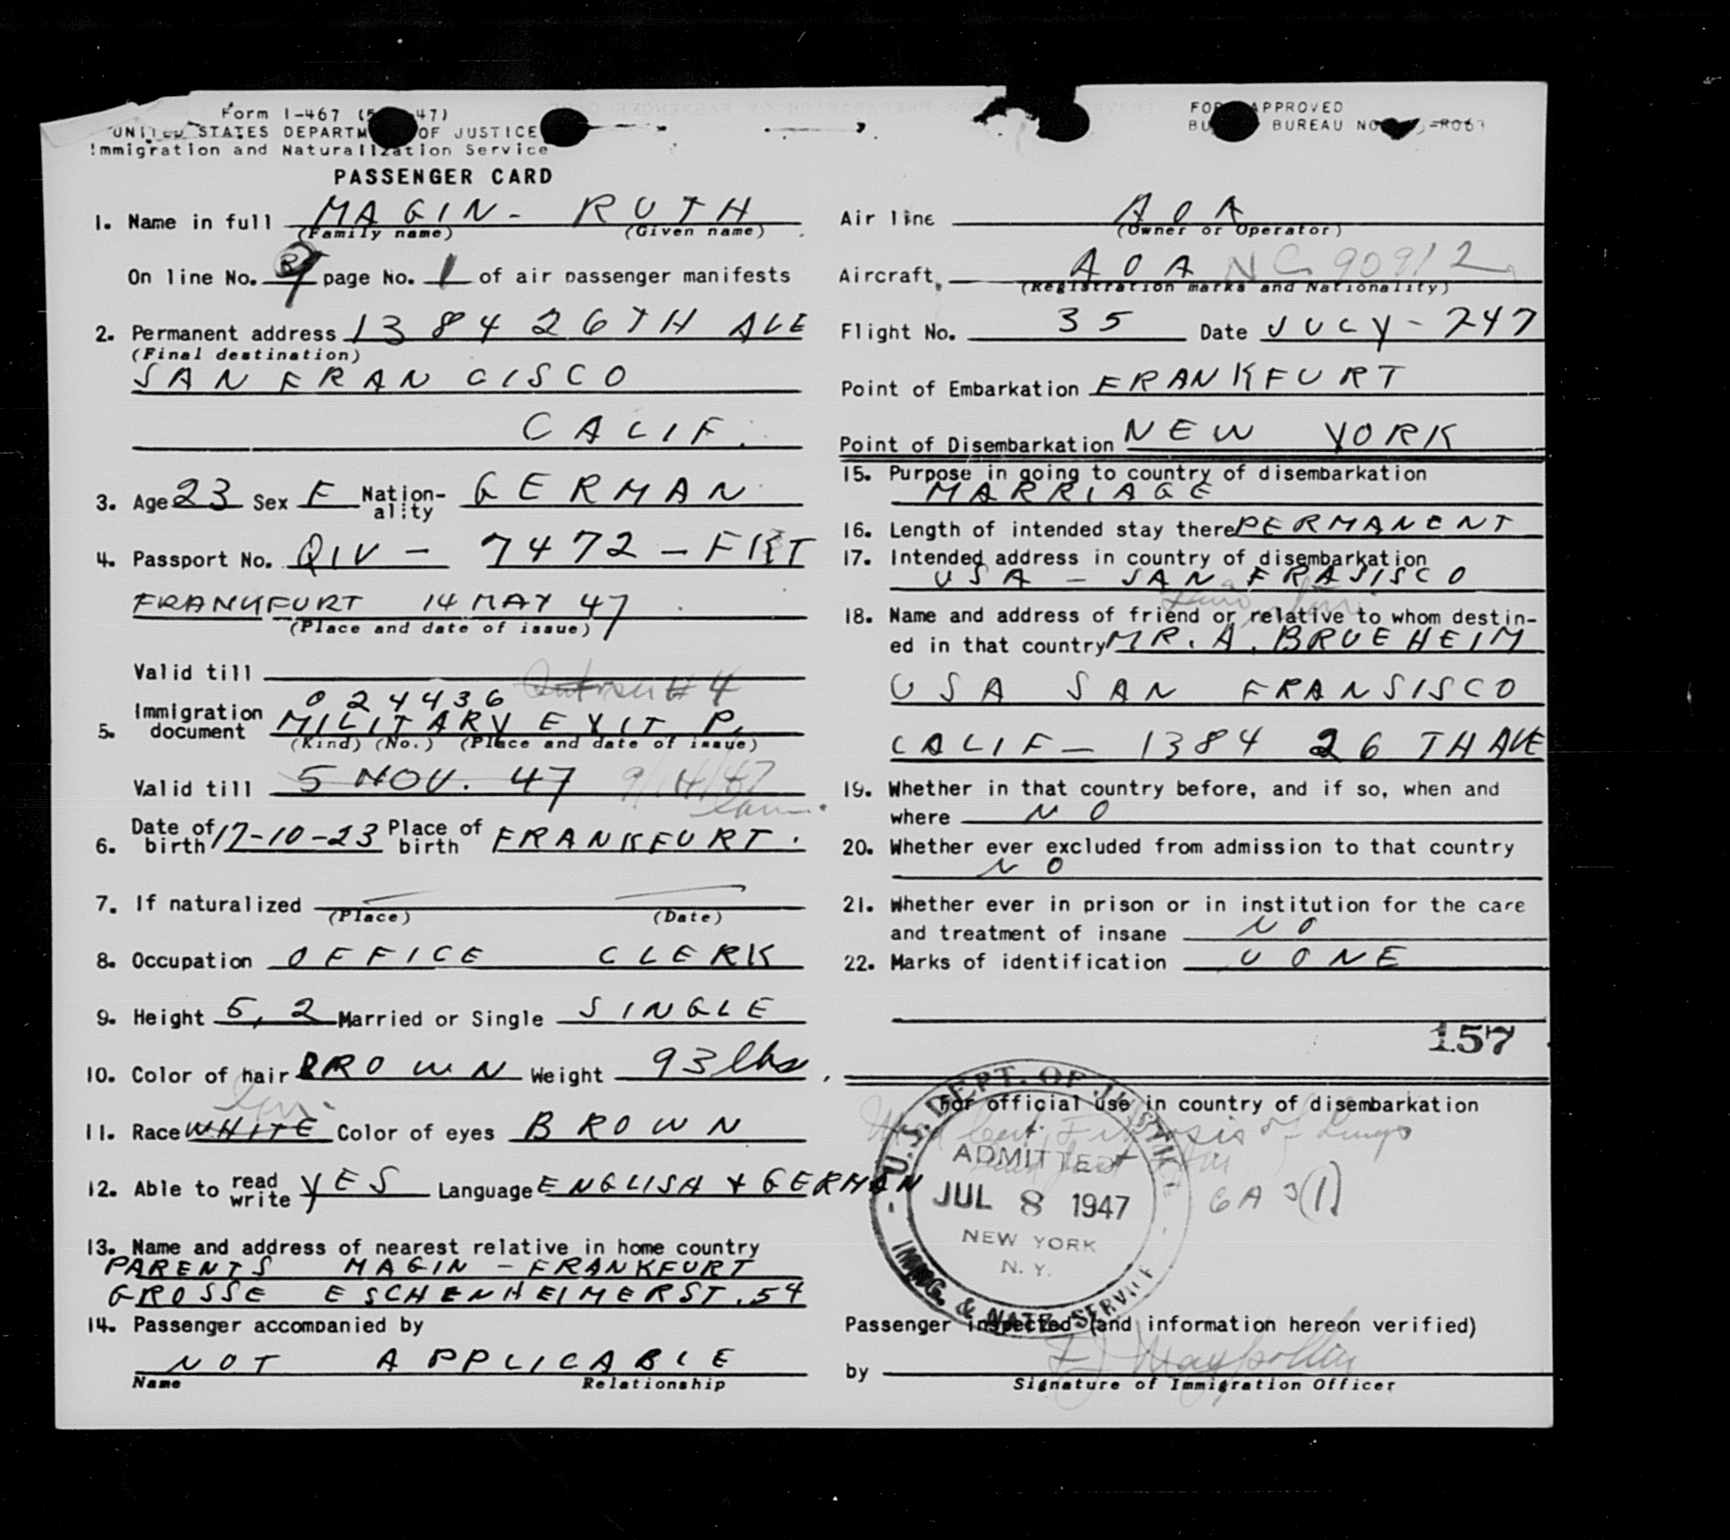 Form I-467
UNITED STATES DEPARTMENT OF JUSTICE
Immigration and Naturalization Service
PASSENGER CARD
1. Name in full MAGIN - RUTH
(Family name) (Given name)
On line No. page No. 1 of air passenger manifests
2. Permanent address 1384 26TH AVE
(Final destination)
SAN FRANCISCO
CALIF.
3. Age 23 Sex F Nation-ality GERMAN
4. Passport No. QIV - 7472 - FKT
FRANKFURT 14 MAY 47
(Place and date of issue)
Valid till
024436 #4
5. Immigration document MILITARY EXIT P.
(Kind) (No.) (Place and date of issue)
Valid till 5 NOV. 47 9/14/47
6. Date of birth 17-10-23 Place of birth FRANKFURT.
7. If naturalized
(Place) (Date)
8. Occupation OFFICE CLERK
9. Height 5,2 Married or Single SINGLE
10. Color of hair BROWN Weight 93 lbs
11. Race WHITE Color of eyes BROWN
12. Able to read write YES Language ENGLISH + GERMAN
13. Name and address of nearest relative in home country
PARENTS MAGIN - FRANKFURT
GROSSE ESCHENHEIMERST. 54
14. Passenger accompanied by
NOT APPLICABLE
Name Relationship
FORM APPROVED
BUREAU NO.
Air line AOA
(Owner or Operator)
Aircraft AOA NC 90912
(Registration marks and Nationality)
Flight No. 35 Date JULY - 747
Point of Embarkation FRANKFURT
Point of Disembarkation NEW YORK
15. Purpose in going to country of disembarkation
MARRIAGE
16. Length of intended stay there PERMANENT
17. Intended address in country of disembarkation
USA - SAN FRASISCO
18. Name and address of friend or relative to whom destin-
ed in that country MR. A. BRUEHEIM
USA SAN FRANSISCO
CALIF - 1384 26 TH AVE
19. Whether in that country before, and if so, when and
where NO
20. Whether ever excluded from admission to that country
NO
21. Whether ever in prison or in institution for the care
and treatment of insane NO
22. Marks of identification NONE
157
For official use in country of disembarkation
U.S. DEPT. OF JUSTICE
ADMITTED
JUL 8 1947
NEW YORK
N.Y.
IMMIG. & NATZ. SERVICE
6A3(1)
Passenger inspected (and information hereon verified)
by
Signature of Immigration Officer